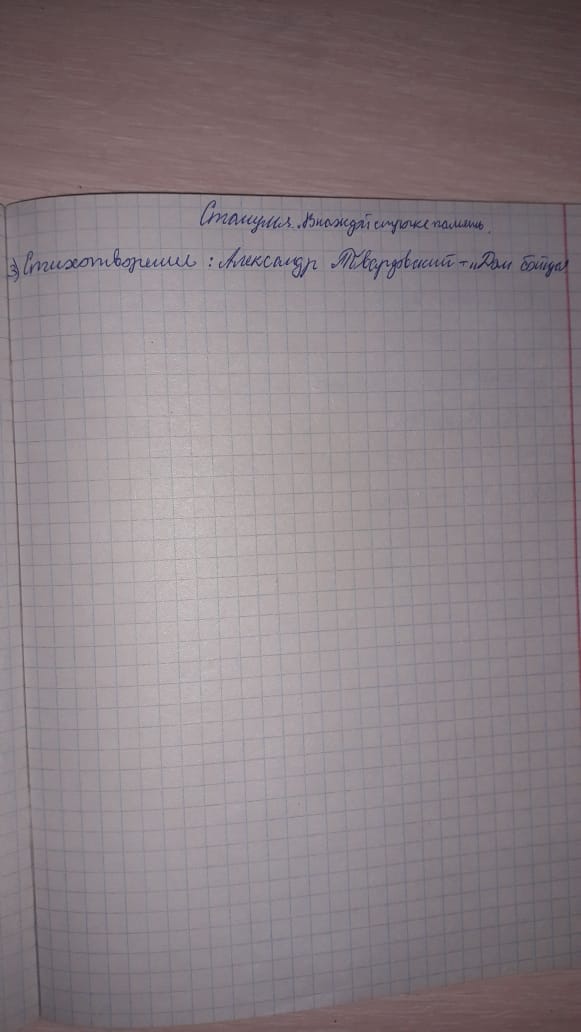 Станция. В каждой строчке память.
3) Стихотворение : Александр Твардовский - „Дом бойца"